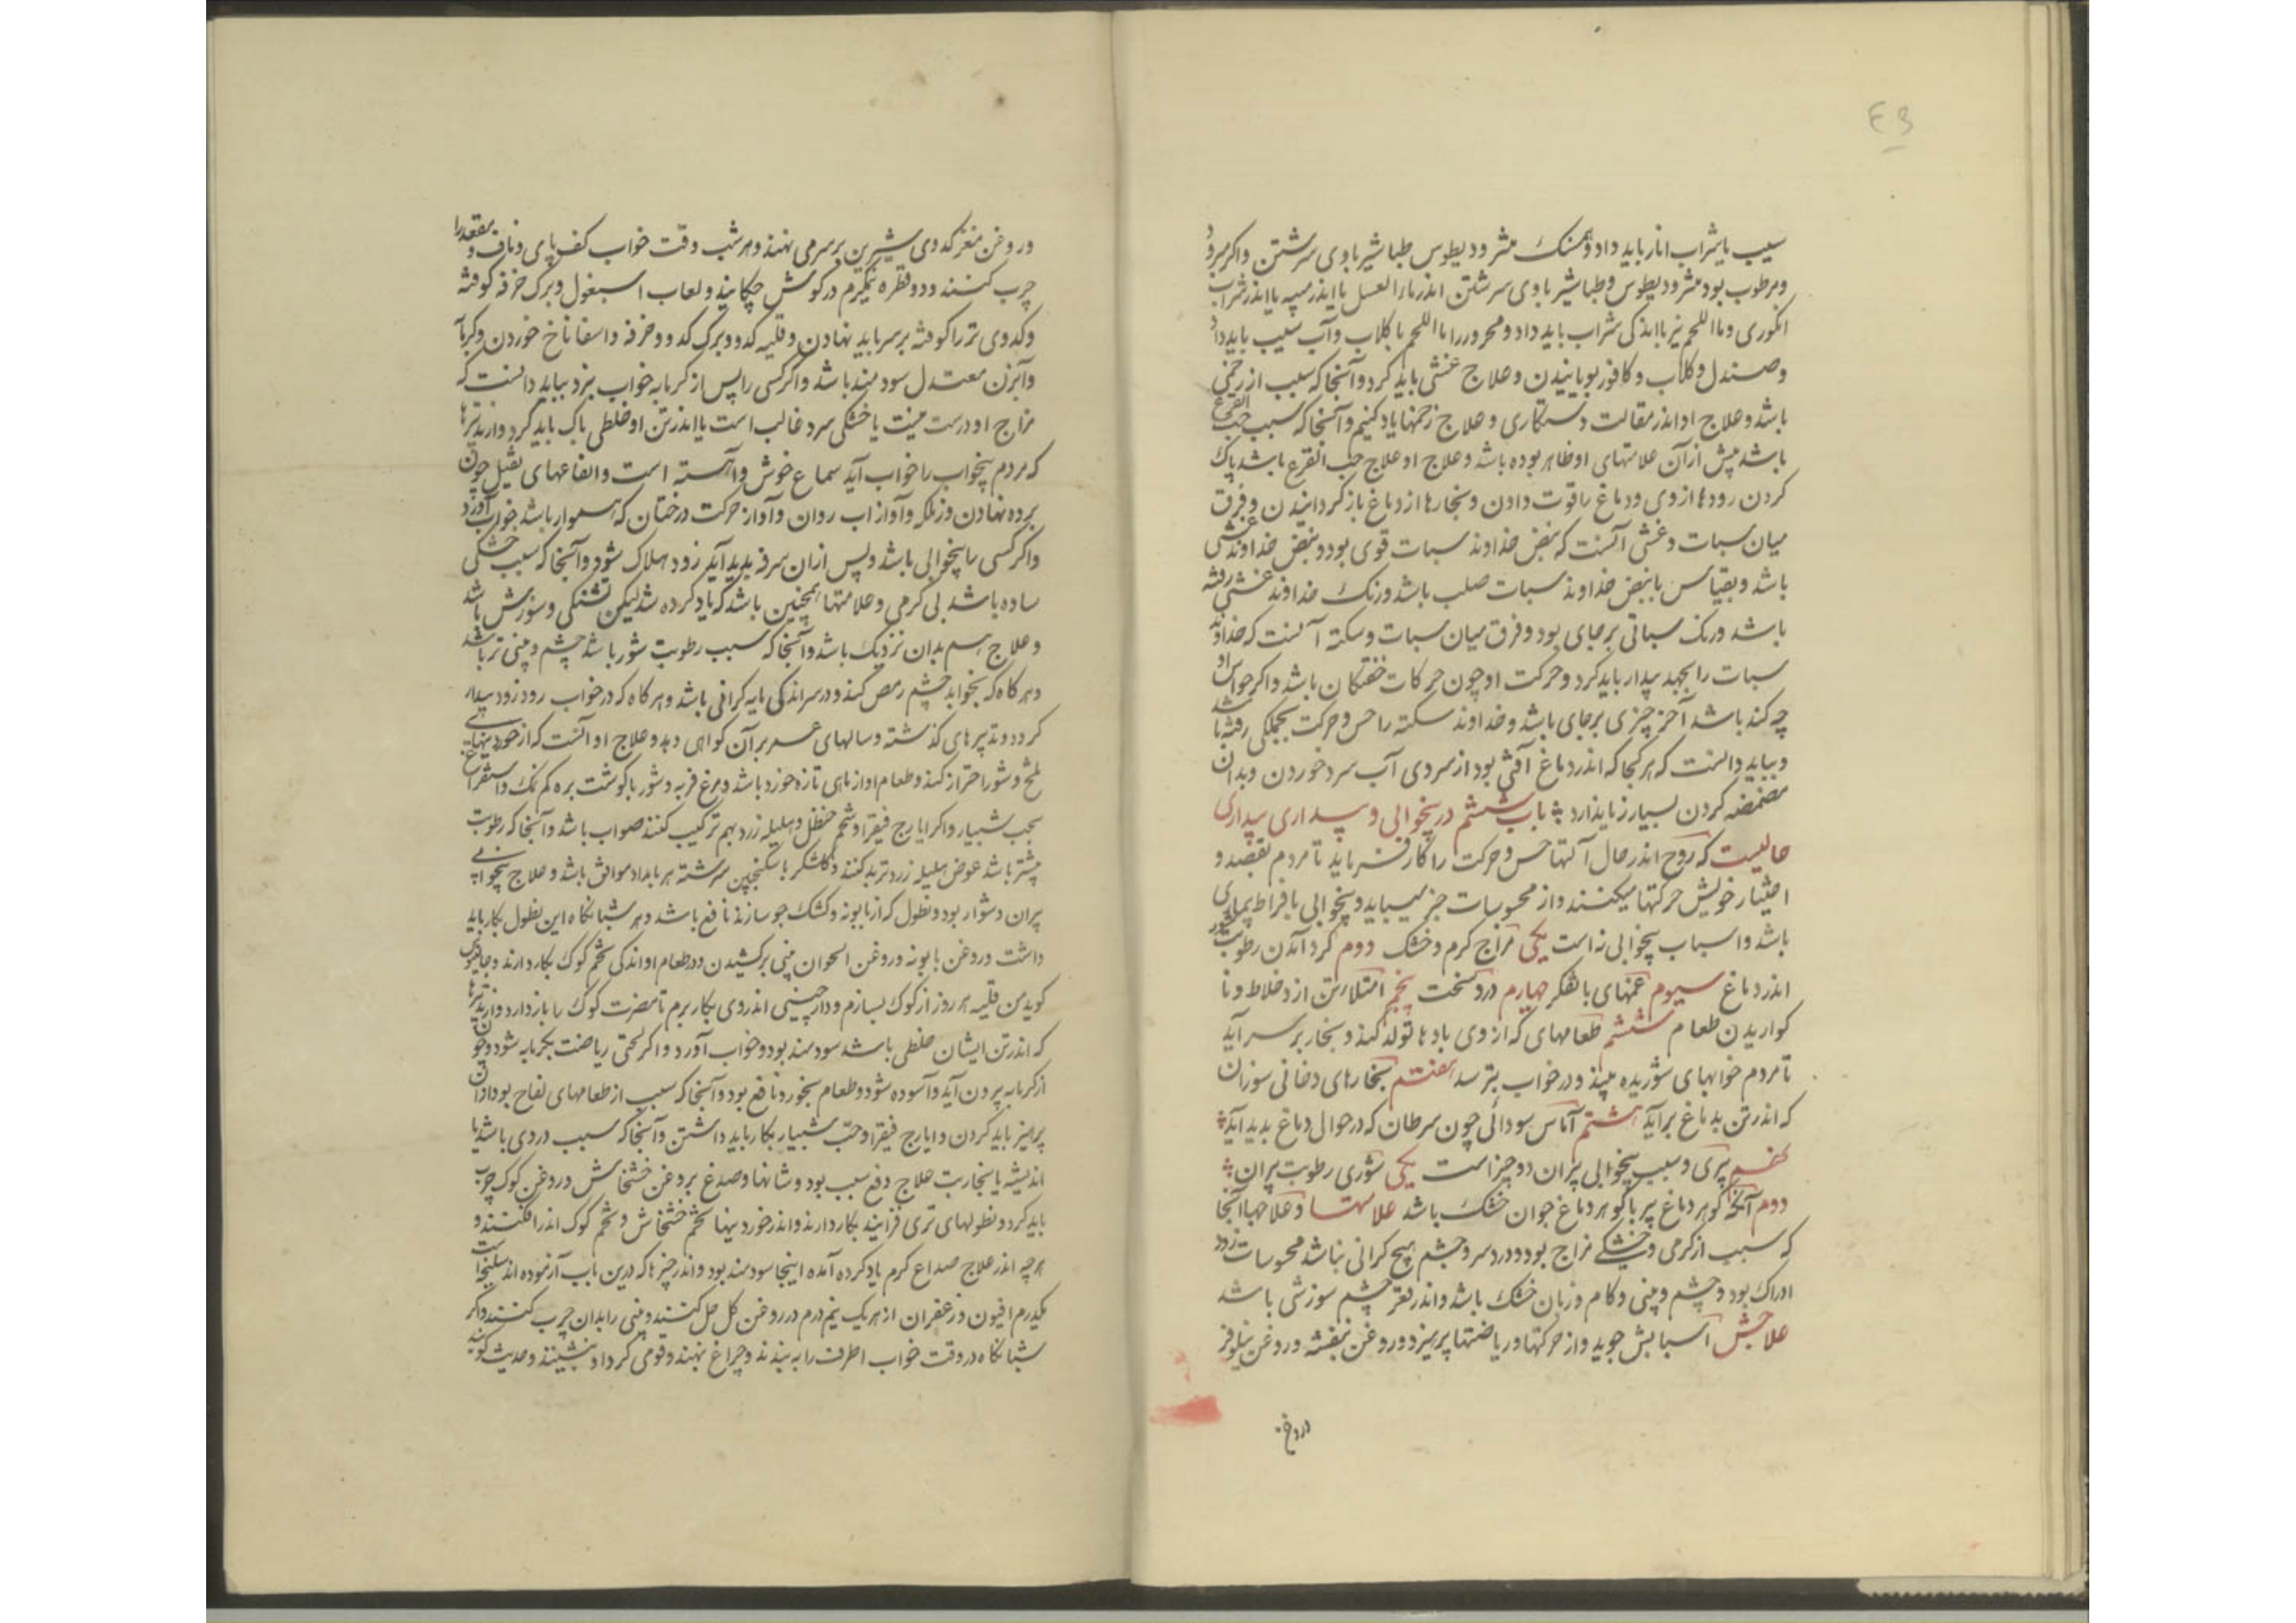 ۴۹
سیب یا شراب انار باید داد و مشک مثرودیطوس طباشیر با وی سرشتن و اگر مبرود
و مرطوب بود مثرودیطوس و طباشیر با وی سرشتن اندر ماء العسل یا اندر میبه یا اندر شراب
انکوری و ماءاللحم نیز با اندکی شراب باید داد و محرور را ماءاللحم با کلاب و آب سیب باید داد
و صندل و کلاب و کافور بویانیدن و علاج غشی باید کرد و آنجا که سبب از زخمی
باشد و علاج او اندر مقالت دستکاری و علاج زخمها یاد کنیم و آنجا که سبب حب القرع
باشد پیش از آن علامتهای او ظاهر بوده باشد و علاج او علاج حب القرع باشد پاک
کردن رودها از وی و دماغ را قوت دادن و بخارها از دماغ باز کردانیدن و فرق
میان سبات و غشی آنست که نبض خداوند سبات قوی بود و نبض خداوند غشی
باشد و بقیاس با نبض خداوند سبات صلب باشد و رنک خداوند غشی رفته
باشد و رنک سباتی بر جای بود و فرق میان سبات و سکته آنست که خداوند
سبات را بجهد بیدار باید کرد و حرکت او چون حرکات خفتکان باشد و اکر حواس او
چه کند باشد آخر چیزی بر جای باشد و خداوند سکته را حس و حرکت بجملکی رفته باشد
و بباید دانست که هر کجا که اندر دماغ آفتی بود از سردی آب سرد خوردن و بدان
مضمضه کردن بسیار زیان دارد باب ششم در بیخوابی و بیداری بیداری
حالیست که روح اندر حال آلتهای حس و حرکت را کار فرماید تا مردم بقصد و
اختیار خویش حرکتها میکنند و از محسوسات خبر میباید و بیخوابی بافراط بیماری
باشد و اسباب بیخوابی نه است یکی مزاج کرم و خشک دوم کرد آمدن رطوبت شور
اندر دماغ سیوم غمهای با تفکر چهارم درد سخت پنجم امتلاء تن از اخلاط و نا
کواریدن طعام ششم طعامهای که از وی بادها تولد کند و بخار بر سر آید
تا مردم خوابهای شوریده بیند و در خواب بترسد هفتم بخارهای دخانی سوزان
که اندر تن بدماغ برآید هشتم آماس سودائی چون سرطان که در حوالی دماغ بدید آید
نهم پیری و سبب بیخوابی پیران دو چیز است یکی شوری رطوبت پیران
دوم آنکه کوهر دماغ پیر با کوهر دماغ جوان خشک باشد علامتها و علاجها آنجا
که سبب از کرمی و خشکی مزاج بود و در سر و چشم هیچ کرانی نباشد محسوسات زود
ادراک بود و چشم و بینی و کام و زبان خشک باشد و اندر قعر چشم سوزشی باشد
علاجش آسایش جوید و از حرکتها و ریاضتها پرهیزد و روغن بنفشه و روغن نیلوفر
و روغن
و روغن مغز کدوی شیرین بر سر می نهند و هر شب وقت خواب کف پای و ناف و مقعد را
چرب کنند و دو قطره نیمکرم در کوش چکانند و لعاب اسبغول و برک خرفه کوفته
و کدوی تر را کوفته بر سر باید نهادن و قلیه کدو و برک کدو و خرفه و اسفاناخ خوردن و کرمابه
و آبزن معتدل سودمند باشد و اکر کسی را پس از کرمابه خواب نبرد بباید دانست که
مزاج او درست نیست یا خشکی سرد غالب است یا اندر تن او خلطی پاک باید کرد و از تدبیرها
که مردم بیخواب را خواب آید سماع خوش و آهسته است و ایقاعهای ثقیل چون
پرده نهادن و زنکله و آواز آب روان و آواز حرکت درختان که هموار باشد خواب آورد
و اکر کسی را بیخوابی باشد و پس از آن سرفه پدید آید زود هلاک شود و آنجا که سبب خشکی
ساده باشد بی کرمی و علامتها همچنین باشد که یاد کرده شد لیکن تشنکی و سوزش باشد
و علاج هم بدان نزدیک باشد و آنجا که سبب رطوبت شور باشد چشم و بینی تر باشد
و هر کاه که بخوابد چشم رمص کند و در سر اندکی مایه کرانی باشد و هر کاه که در خواب رود زود بیدار
کردد و تدبیرهای کذشته و سالهای عمر بر آن کواهی دهد و علاج او آنست که از خوردنیهای
تلخ و شور احتراز کند و طعام او از ماهی تازه خورد باشد و مرغ فربه و شوربا کوشت بره کم نمک و استفراغ
بحب شبیار و اکر ایارج فیقرا و شحم حنظل و هلیله زرد بهم ترکیب کنند صواب باشد و آنجا که رطوبت
بیشتر باشد عوض هلیله زرد تربد کنند و کلشکر با سکنجبین سرشته هر بامداد موافق باشد و علاج بیخوابی
پیران دشوار بود و نطول که از بابونه و کشک جو سازند نافع باشد و هر شبانکاه این نطول بکار باید
داشت و روغن بابونه و روغن اقحوان ببینی برکشیدن و در طعام او اندکی تخم کوک بکار دارند و جالینوس
کوید من قلیه هر روز از کوک بسازم و دارچینی اندر وی بکار برم تا مضرت کوک را باز دارد و از تدبیرها
که اندر تن ایشان خلطی باشد سودمند بود و خواب آورد و اکر لختی ریاضت بکرمابه شود و چون
از کرمابه بیرون آید و آسوده شود و طعام بخورد نافع بود و آنجا که سبب از طعامهای نفاخ بود از آن
پرهیز باید کردن و ایارج فیقرا و حب شبیار بکار باید داشتن و آنجا که سبب دردی باشد یا
اندیشه یا بخار تب علاج دفع سبب بود و شانها و صدغ بروغن خشخاش و روغن کوک چرب
باید کرد و نطولهای تری فزایند بکار دارند و اندر خوردنیها تخم خشخاش و تخم کوک اندر افکنند و
هر چه اندر علاج صداع کرم یاد کرده آمده اینجا سودمند بود و اندر چیزها که درین باب آزموده اند سلیخه است
یکدرم افیون و زعفران از هر یک نیم درم در روغن کل حل کنند و بینی را بدان چرب کنند و اکر
شبانکاه در وقت خواب اطراف را ببندند و چراغ بنهند و قومی کرد او بنشینند و حدیث کویند